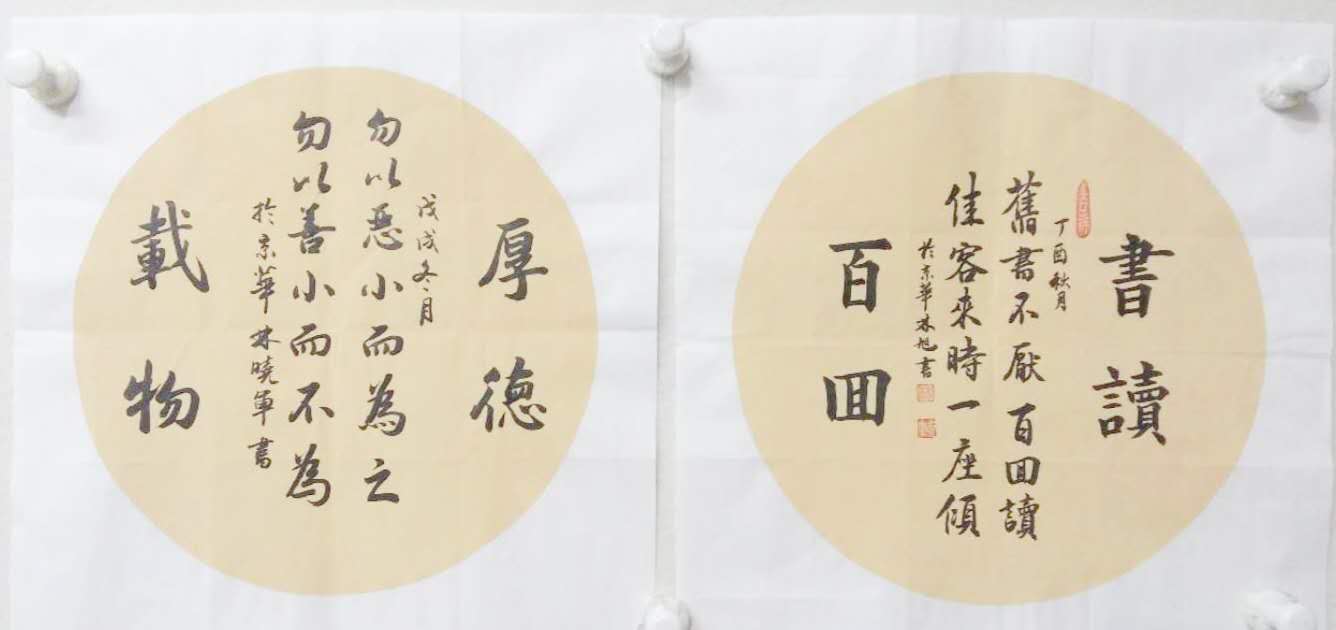 書讀
丁酉秋月
舊書不厭百囬讀
佳客來時一座傾
於京華林旭書
百囬
厚德
戊戌冬月
勿以恶小而為之
勿以善小而不為
於京華林曉軍書
載物